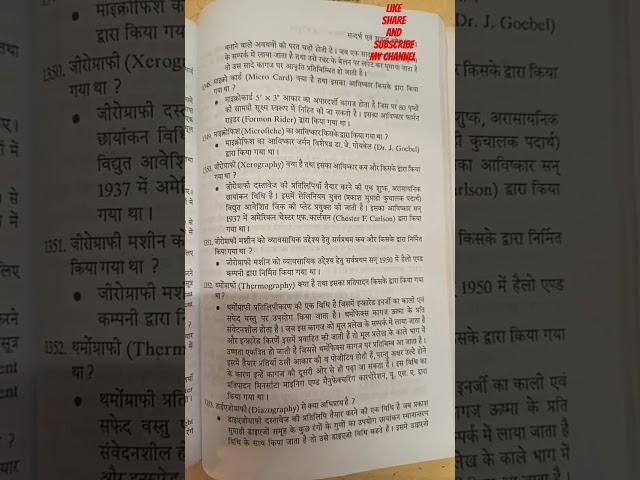 LIKE
SHARE
AND
SUBSCRIBE
MY CHANNEL
सन्दर्भ एवं सूचना
बनाने वाले अवयवों की परत चढ़ी होती है। जब एक
के सम्पर्क में लाया जाता है तथा उसे रबर के बेलन पर लपेट कर घुमाया जाता है
तो उस सादे कागज पर आकृति प्रतिबिम्बित हो जाती है।
माइक्रो कार्ड (Micro Card) क्या है तथा इसका आविष्कार किसके द्वारा किया
गया था ?
• माइक्रोकार्ड 5" × 3" आकार का अपारदर्शी कागज होता है जिस पर 80 पृष्ठों
की सामग्री सूक्ष्म स्वरूप में निहित की जा सकती है। इसका आविष्कार फार्मन
राइडर (Formon Rider) द्वारा किया गया था।
1349. माइक्रोफिश (Microfiche) का आविष्कार किसके द्वारा किया गया था ?
• माइक्रोफिश का आविष्कार जर्मन विशेषज्ञ डा. जे. गोयबेल (Dr. J. Goebel)
द्वारा किया गया था।
1350. जीरोग्राफी (Xerography) क्या है तथा इसका आविष्कार कब और किसके द्वारा किया
गया था ?
• जीरोग्राफी दस्तावेज की प्रतिलिपियाँ तैयार करने की एक शुष्क, अरासायनिक
छायांकन विधि है। इसमें सेलिनियम युक्त (प्रकाश सुग्राही कुचालक पदार्थ)
विद्युत आवेशित जिंक की प्लेट प्रयुक्त की जाती है। इसका आविष्कार सन्
1937 में अमेरिकन चेस्टर एफ. कार्लसन (Chester F. Carlson) द्वारा किया
गया था।
1351. जीरोग्राफी मशीन को व्यावसायिक उद्देश्य हेतु सर्वप्रथम कब और किसके द्वारा निर्मित
किया गया था ?
• जीरोग्राफी मशीन को व्यावसायिक उद्देश्य हेतु सर्वप्रथम सन् 1950 में हैलो एण्ड
कम्पनी द्वारा निर्मित किया गया था।
1352. थर्मोग्राफी (Thermography) क्या है तथा इसका प्रतिपादन किसके द्वारा किया गया
था ?
• थर्मोग्राफी प्रतिलिपीकरण की एक विधि है जिसमें इन्फ्रारेड इनर्जी का काली एवं
सफेद वस्तु पर उपयोग किया जाता है। थर्मोफैक्स कागज ऊष्मा के प्रति
संवेदनशील होता है। जब इस कागज को मूल प्रलेख के सम्पर्क में लाया जाता है
और इन्फ्रारेड किरणें इसमें प्रवाहित की जाती हैं तो मूल प्रलेख के काले भाग में
उष्णता एकत्रित हो जाती है जिससे थर्मोफैक्स कागज पर प्रतिबिम्ब आ जाता है।
इसमें तैयार प्रतियाँ उसी आकार की व पोजीटिव होती हैं, परन्तु अक्षर उल्टे होने
के कारण इन्हें कागज की दूसरी ओर से ही पढ़ा जा सकता है। इस विधि का
प्रतिपादन मिनसोटा माइनिंग एण्ड मैनुफेक्चरिंग कारपोरेशन, यू. एस. ए. द्वारा
किया गया था।
1353. डाईएजोग्राफी (Diazography) से क्या अभिप्राय है ?
• डाइएजोग्राफी दस्तावेज की प्रतिलिपि तैयार करने की एक विधि है जब प्रकाश
सुग्राही डाइएजो समूह के कुछ रंगों के गुणों का उपयोग छायांकन स्थानान्तरण
विधि के साथ किया जाता है तो उसे डाइएजो विधि कहते हैं। इसमें